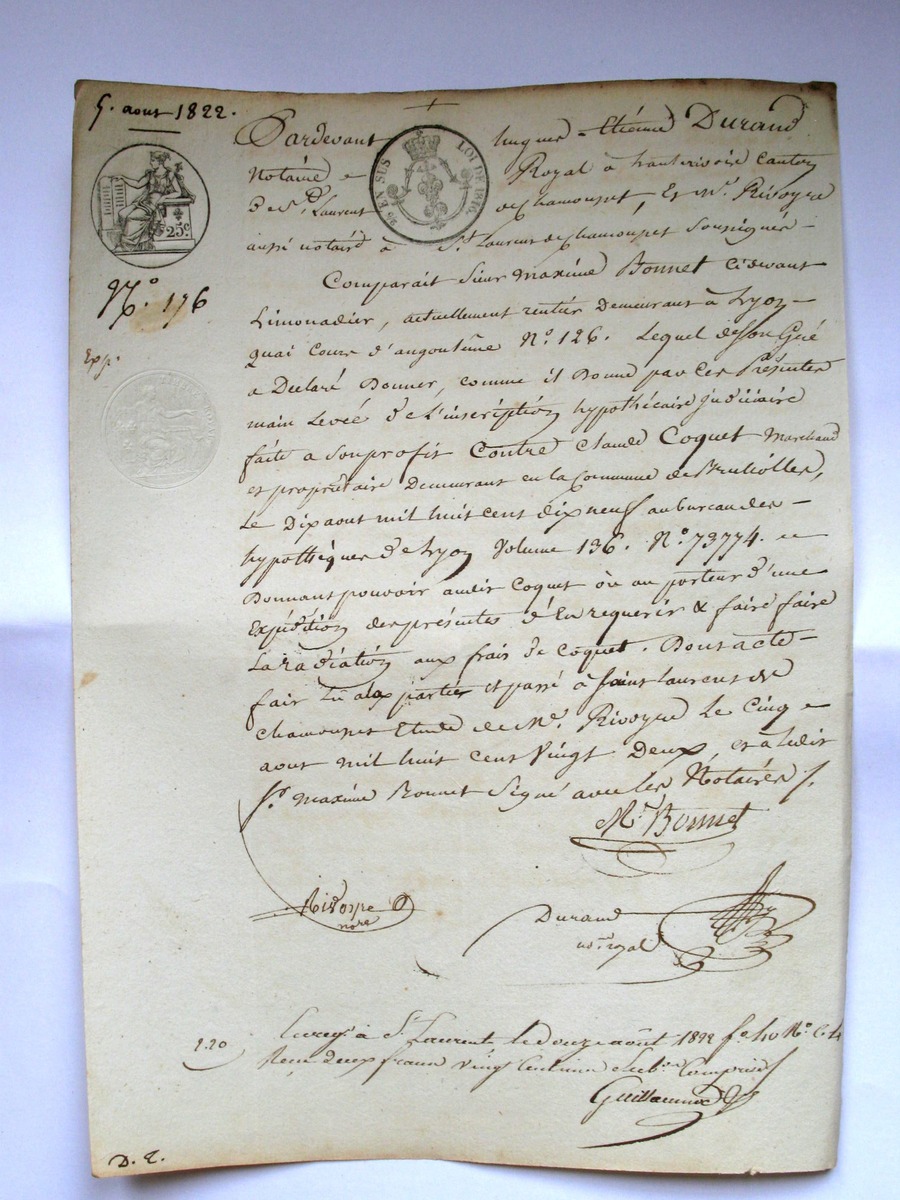 5. aout 1822.
Pardevant hugues - Etienne Durand
Notaire Royal à hauterivoire Canton
De St. Laurent de Chamousset, Et Mr. Rivoyre
aussi notaire à St. Laurent de Chamousset Soussignés -
EN SUS
LOI DE 1816.
25c
No. 176
Exp.
Comparait Sieur maxime Bonnet cidevant
Limonadier, actuellement rentier Demeurant à Lyon -
quai cours d'angoulême No. 126. Lequel de son Gré
a Declaré Donner, comme il Donne par Ces Présentes
main Levée De L'inscription hypothécaire judiciaire
faite a son profit Contre Claude Coquet Marchand
et propriétaire Demeurant en la Commune de Brullolles,
Le Dix aout mil huit cent dix neuf au bureau des -
hypothèques De Lyon Volume 136. No. 73774.
Donnant pouvoir audit Coquet où au porteur d'une
Expédition des présentes d'En requerir & faire faire
La radiation aux frais de Coquet. Dont acte -
fait Lu aux parties et passé à Saint Laurent de
Chamousset Etude de Me. Rivoyre Le Cinq
aout mil huit cent Vingt Deux, et a ledit
Sr. maxime Bonnet Signé avec les Notaires
Mc. Bonnet
Rivoyre
nore
Durand
no. royal
2.20
Enregé à St. Laurent le douze août 1822 fo. 40 Ro. C. 4
Reçu deux francs vingt Centimes Subon. Compris
Guillaumoz
D. E.